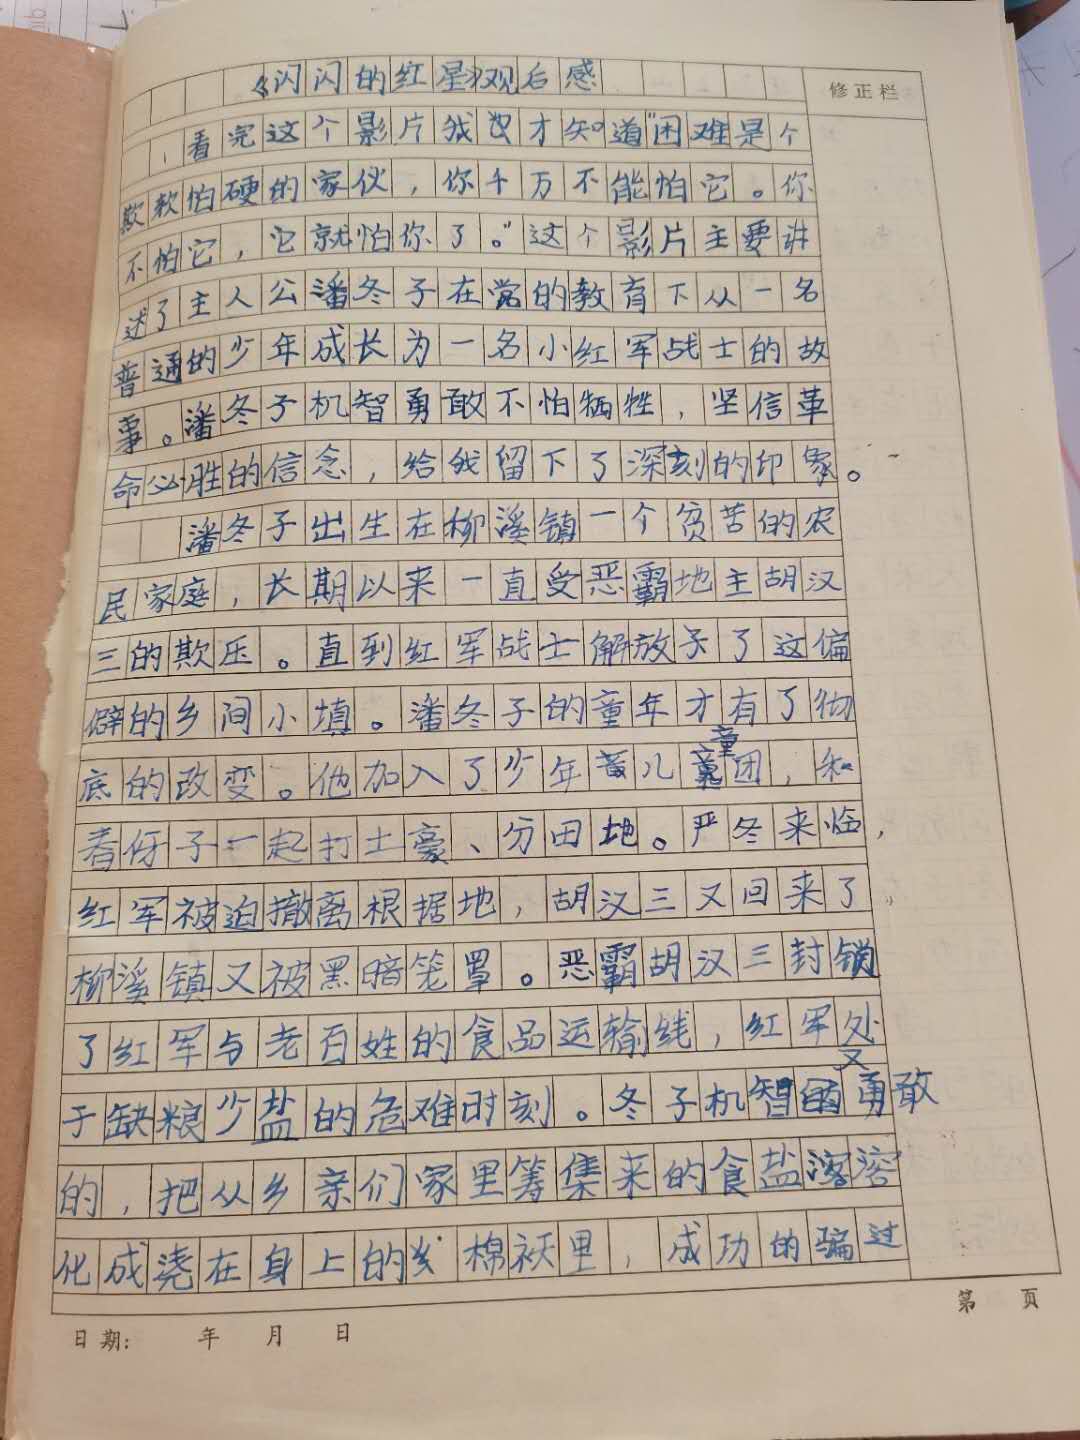 《闪闪的红星》观后感
修正栏
看完这个影片我才知道"困难是个
欺软怕硬的家伙，你千万不能怕它。你
不怕它，它就怕你了。"这个影片主要讲
述了主人公潘冬子在党的教育下从一名
普通的少年成长为一名小红军战士的故
事。潘冬子机智勇敢不怕牺牲，坚信革
命必胜的信念，给我留下了深刻的印象。
潘冬子出生在柳溪镇一个贫苦的农
民家庭，长期以来一直受恶霸地主胡汉
三的欺压。直到红军战士解放了这偏
僻的乡间小填。潘冬子的童年才有了彻
底的改变。他加入了少年儿童团，和
春伢子一起打土豪、分田地。严冬来临，
红军被迫撤离根据地，胡汉三又回来了，
柳溪镇又被黑暗笼罩。恶霸胡汉三封锁
了红军与老百姓的食品运输线，红军处
于缺粮少盐的危难时刻。冬子机智又勇敢
的，把从乡亲们家里筹集来的食盐溶
化成浇在身上的棉袄里，成功的骗过
日期： 年 月 日
第 页